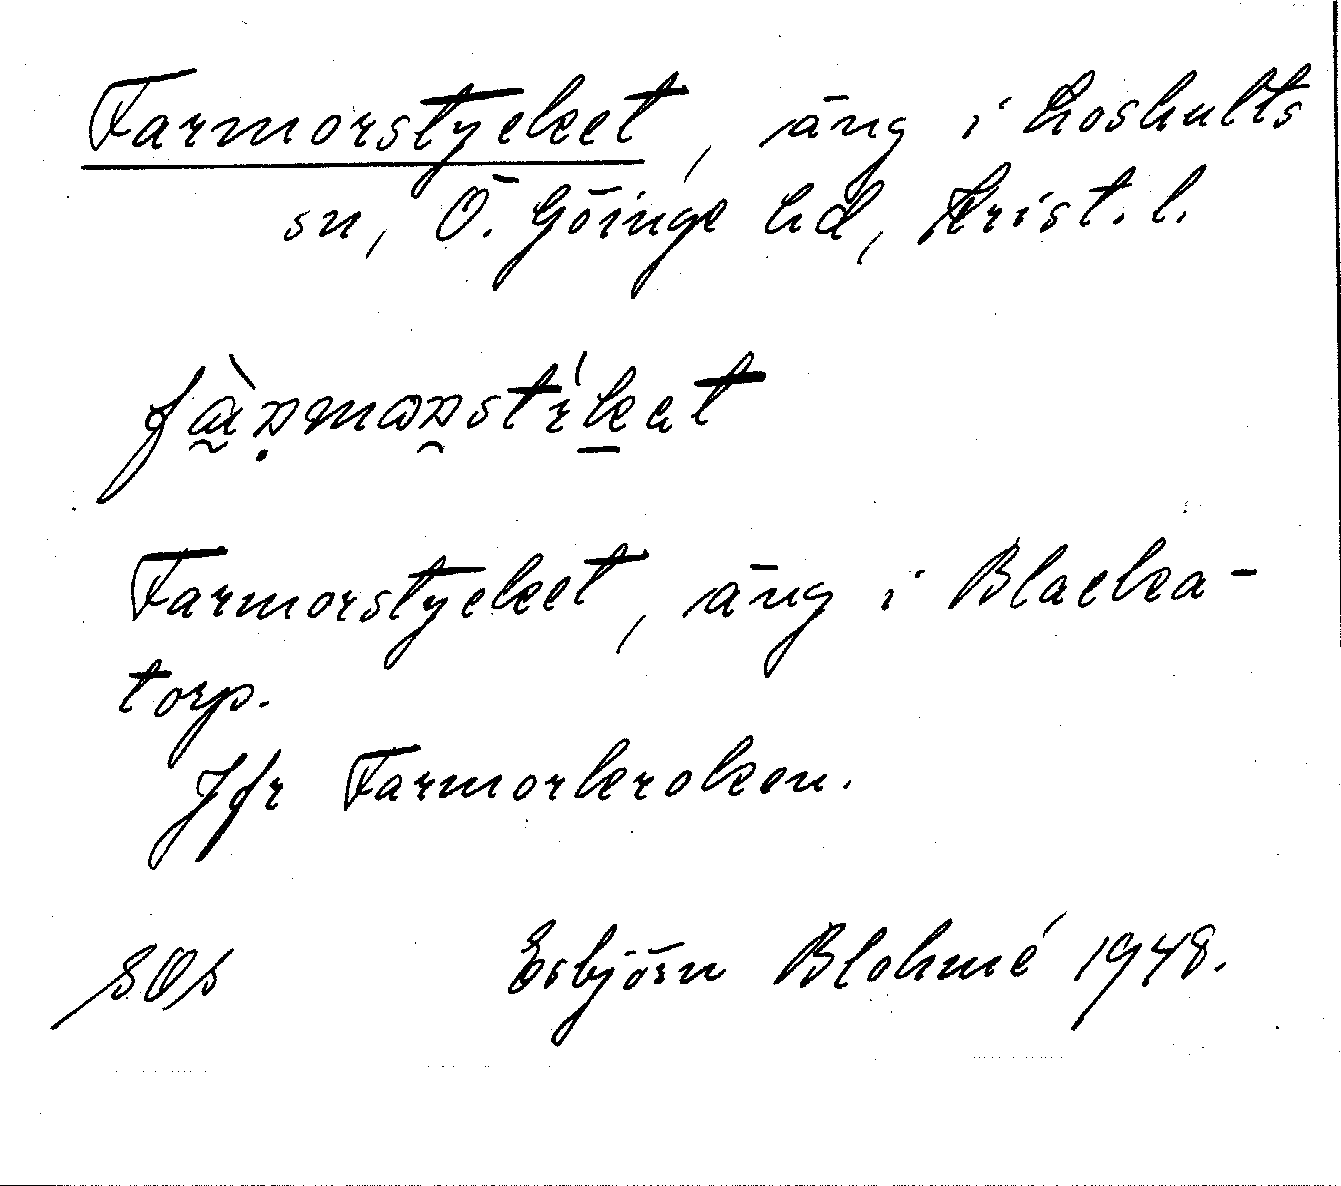 Farmorstycket, äng i Loshults
sn, Ö. Göinge hd, Krist. l.
Farmorstycket, äng i Blacka-
torp.
Jfr Farmorkroken.
SOS Esbjörn Blohmé 1948.